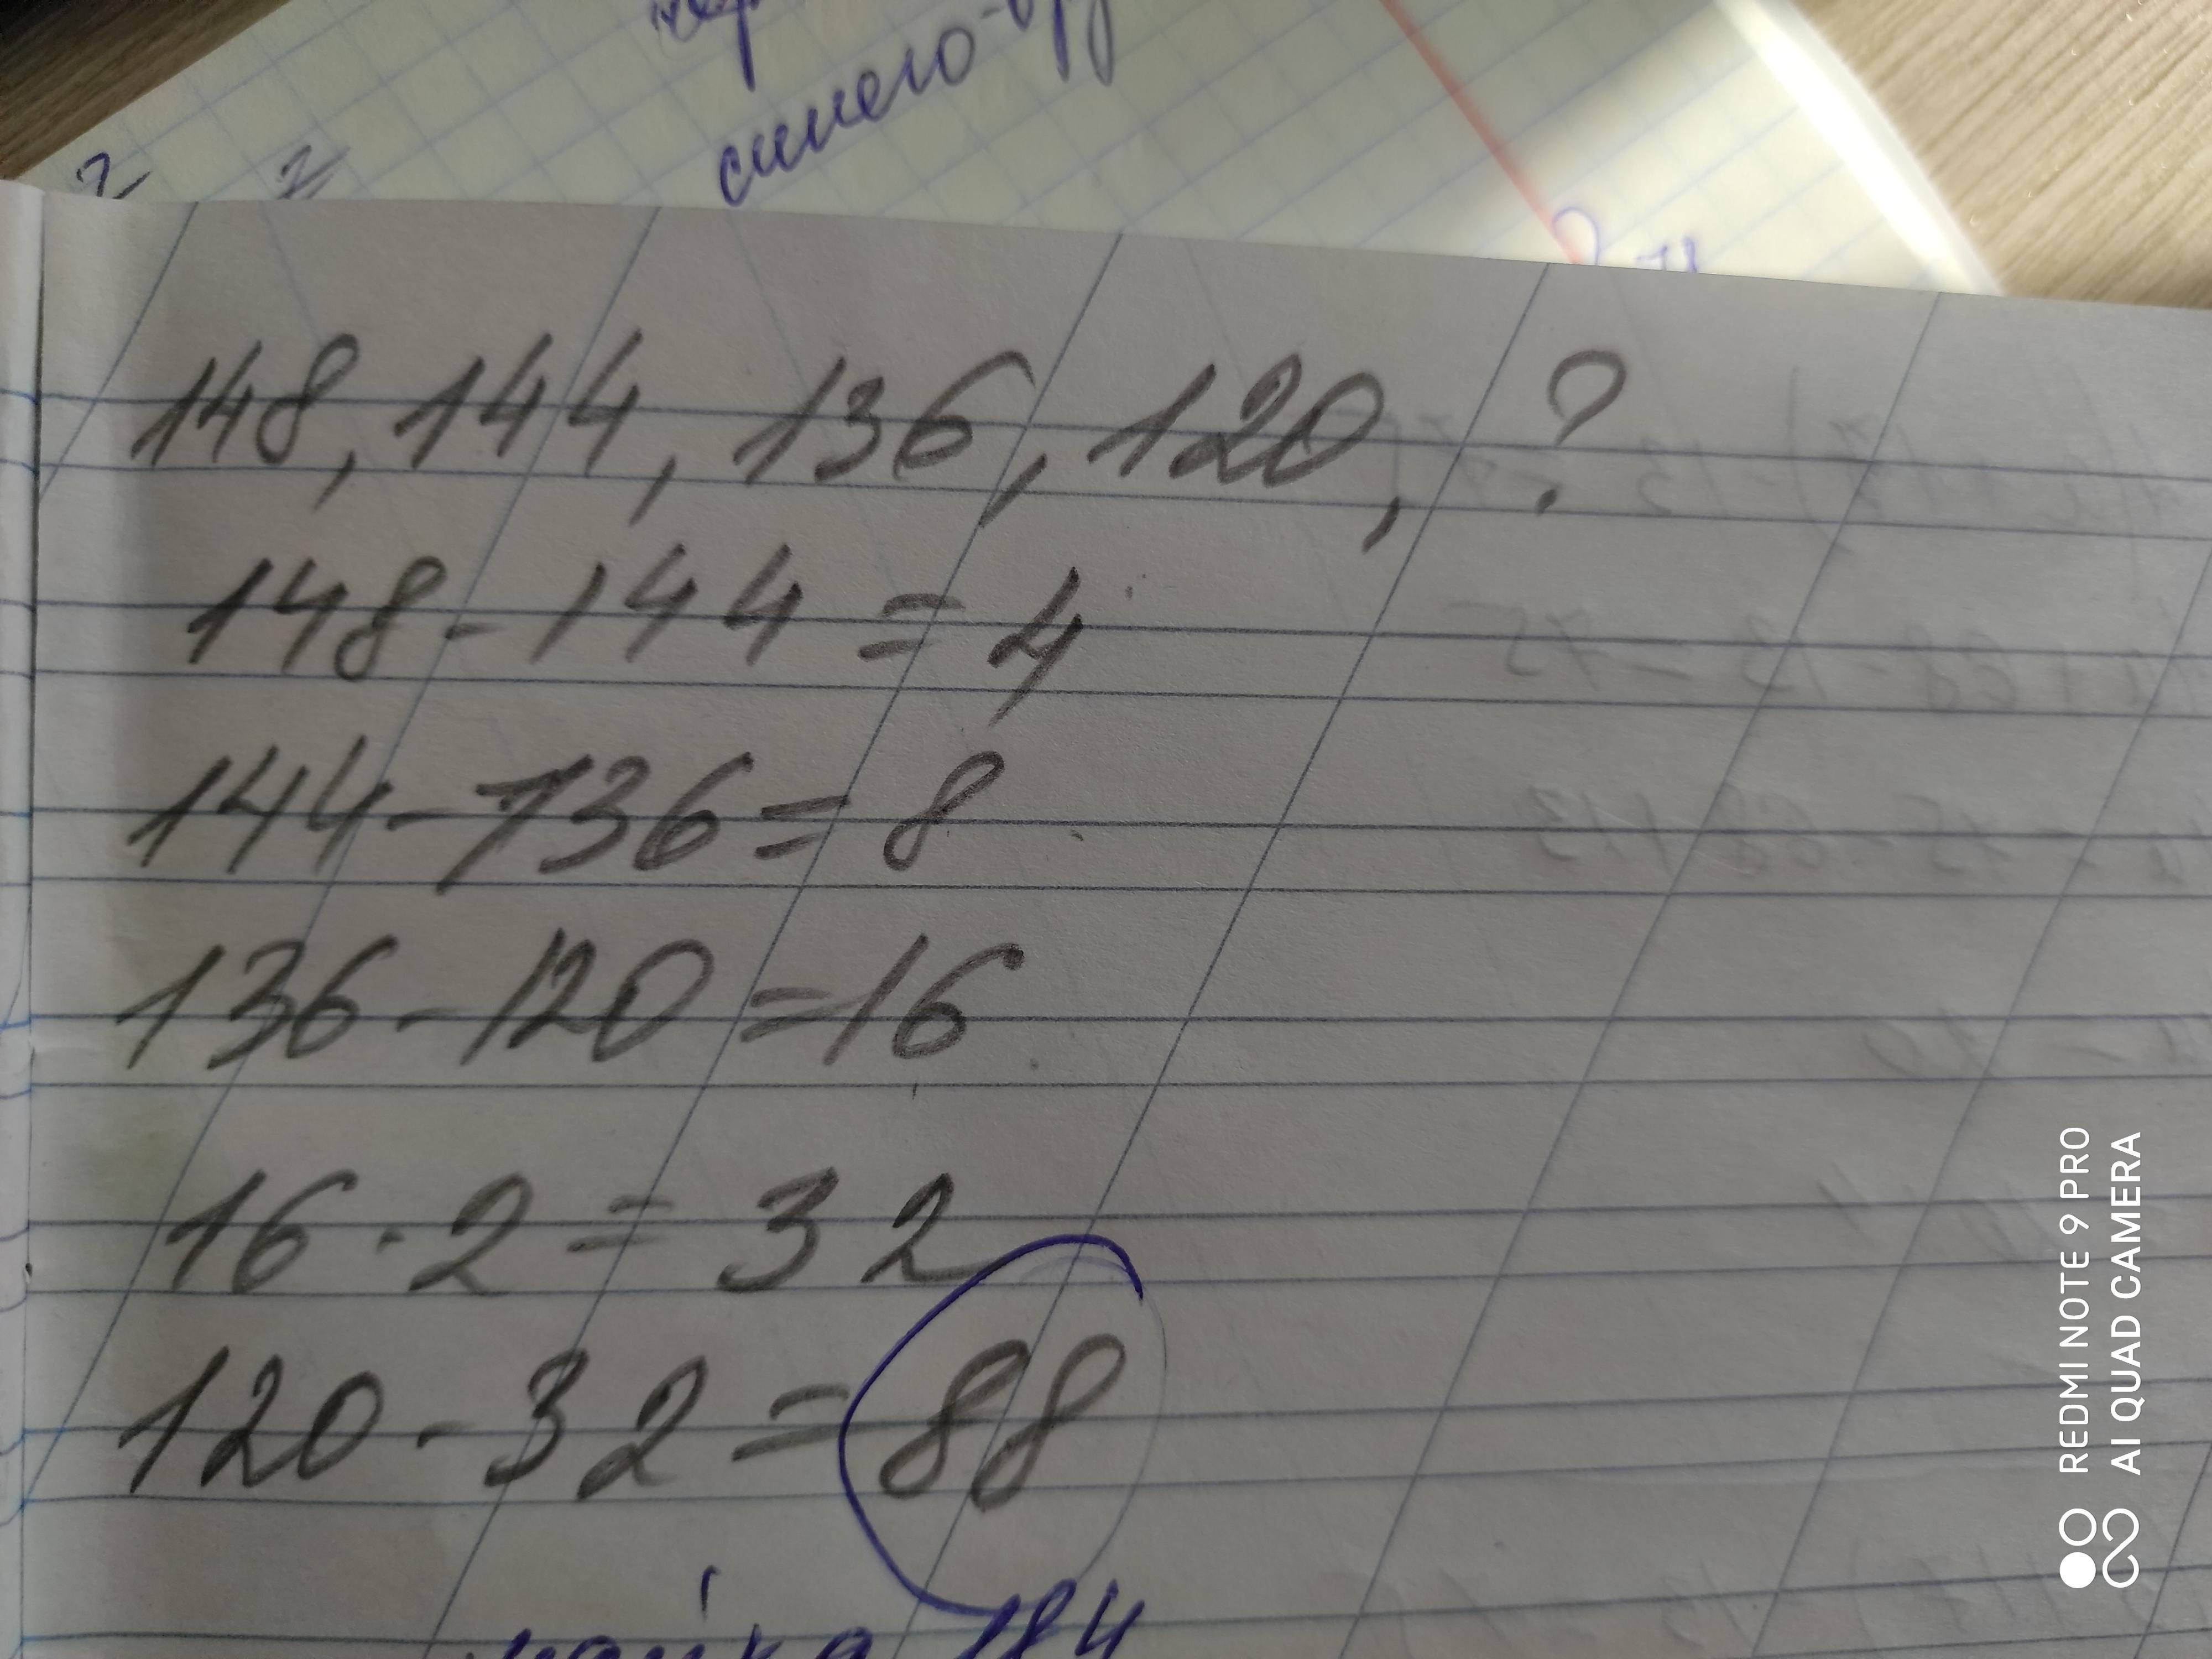 синего
148, 144, 136, 120, ?
148 - 144 = 4
144 - 136 = 8
136 - 120 = 16
16 · 2 = 32
120 - 32 = 88
184
REDMI NOTE 9 PRO
AI QUAD CAMERA